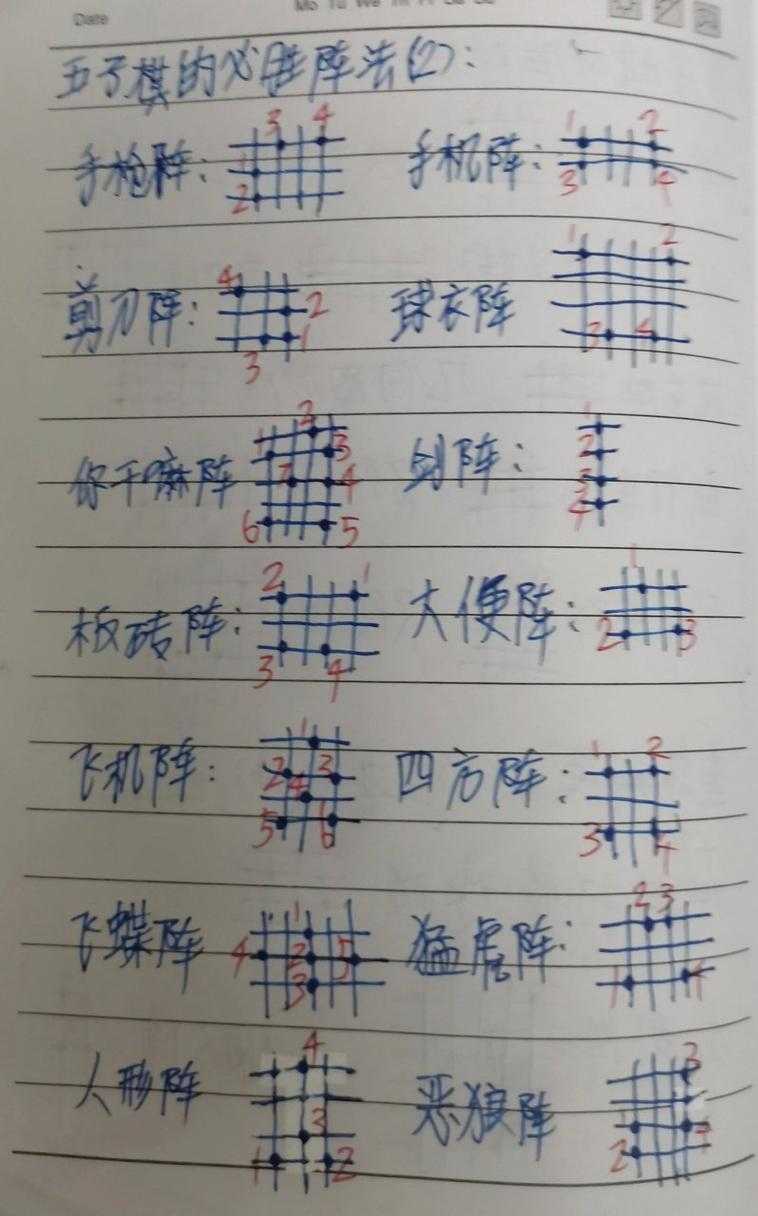 Date Mo Tu We Th Fr Sa Su
五子棋的必胜阵法(2):
手枪阵: 3 4 1 2 手机阵: 1 2 3 4
剪刀阵: 4 2 1 3 球衣阵 1 2 3 4
你干嘛阵 1 2 3 7 4 6 5 剑阵: 1 2 3 4
板砖阵: 2 1 3 4 大便阵: 1 2 3
飞机阵: 1 2 3 4 5 6 四方阵: 1 2 3 4
飞蝶阵 1 4 2 5 3 猛虎阵: 2 3 1 4
人形阵 4 3 1 2 恶狼阵 3 2